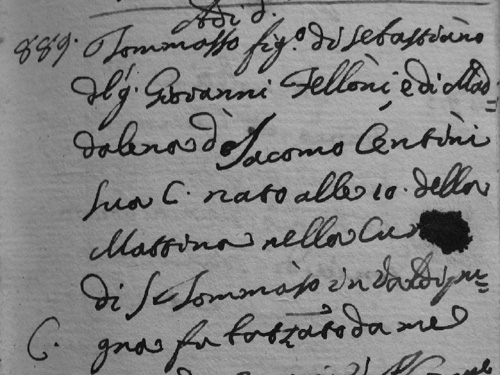 Adi d.
889. Tommasso fig.o di Sebastiano
del q. Giovanni Felloni, e di Mad=
dalena d Jacomo Centini
sua C. nato alle 10. della
Mattina nella Cu
di S. Tommaso in Valdipu=
C. gna fu battezzato da me